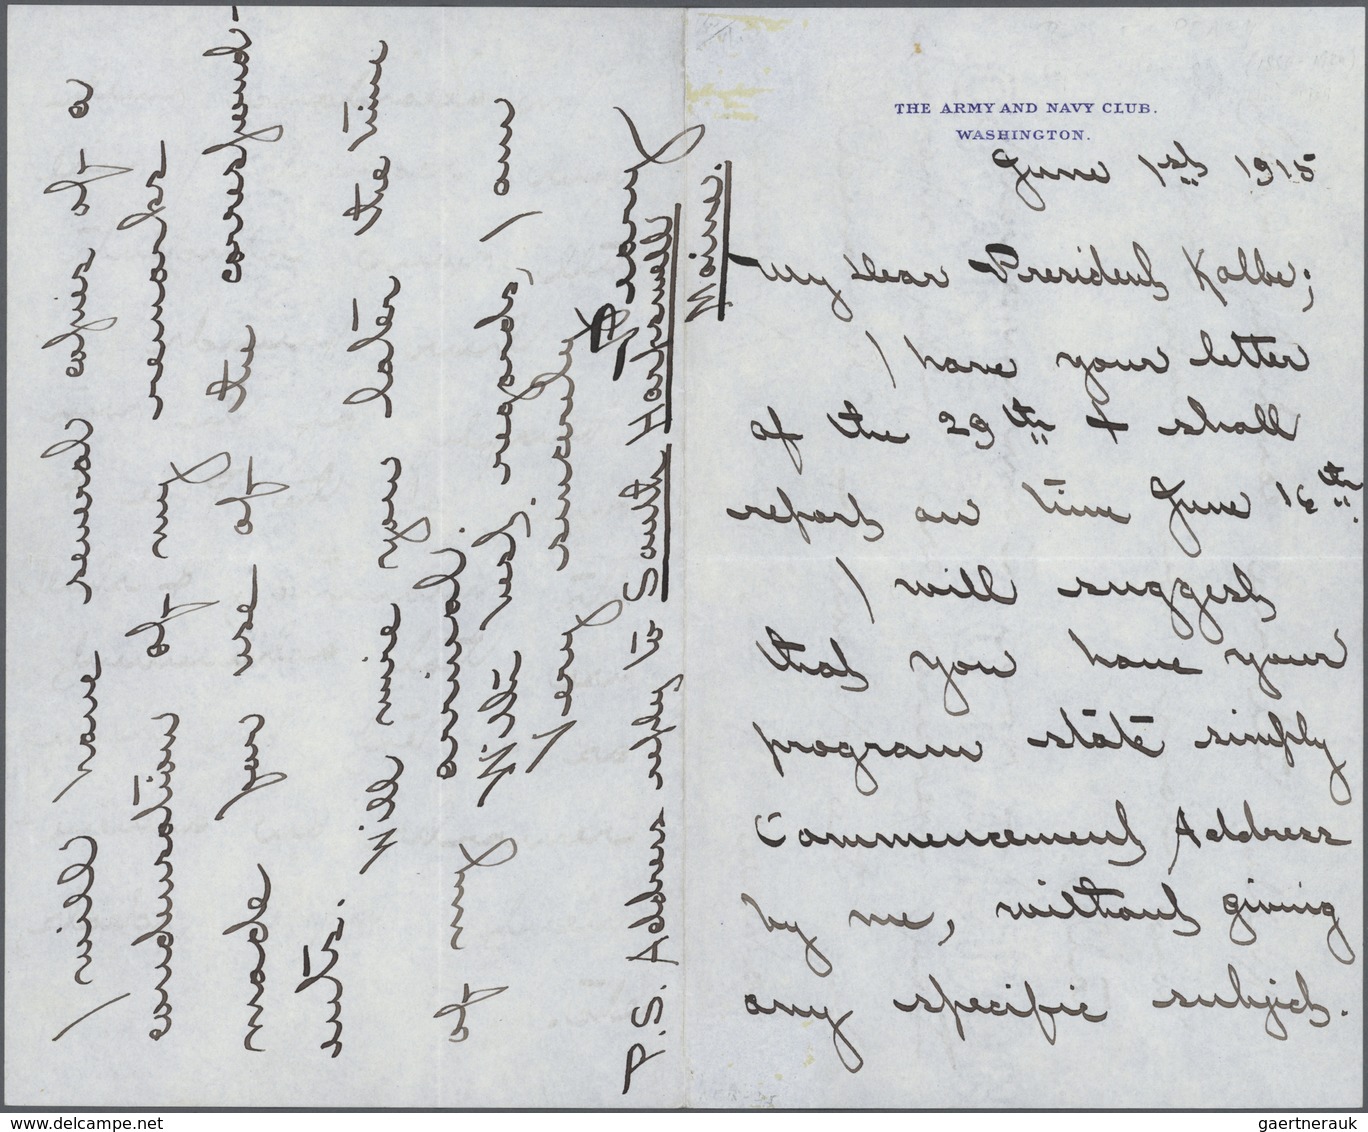 THE ARMY AND NAVY CLUB.
WASHINGTON.
June 1st 1915
My dear President Kolbe;
I have your letter
of the 29th + shall
report on time June 16th.
I will suggest
that you have your
program state simply
Commencement Address
by me, without giving
any specific subject.
I will have several copies of a
condensation of my remarks
made for use of the correspond-
ents.
Will wire you later the time
of my arrival.
With best regards, I am
Very sincerely
Peary
P.S. Address reply to South Harpswell
Maine.
gaertnerauk